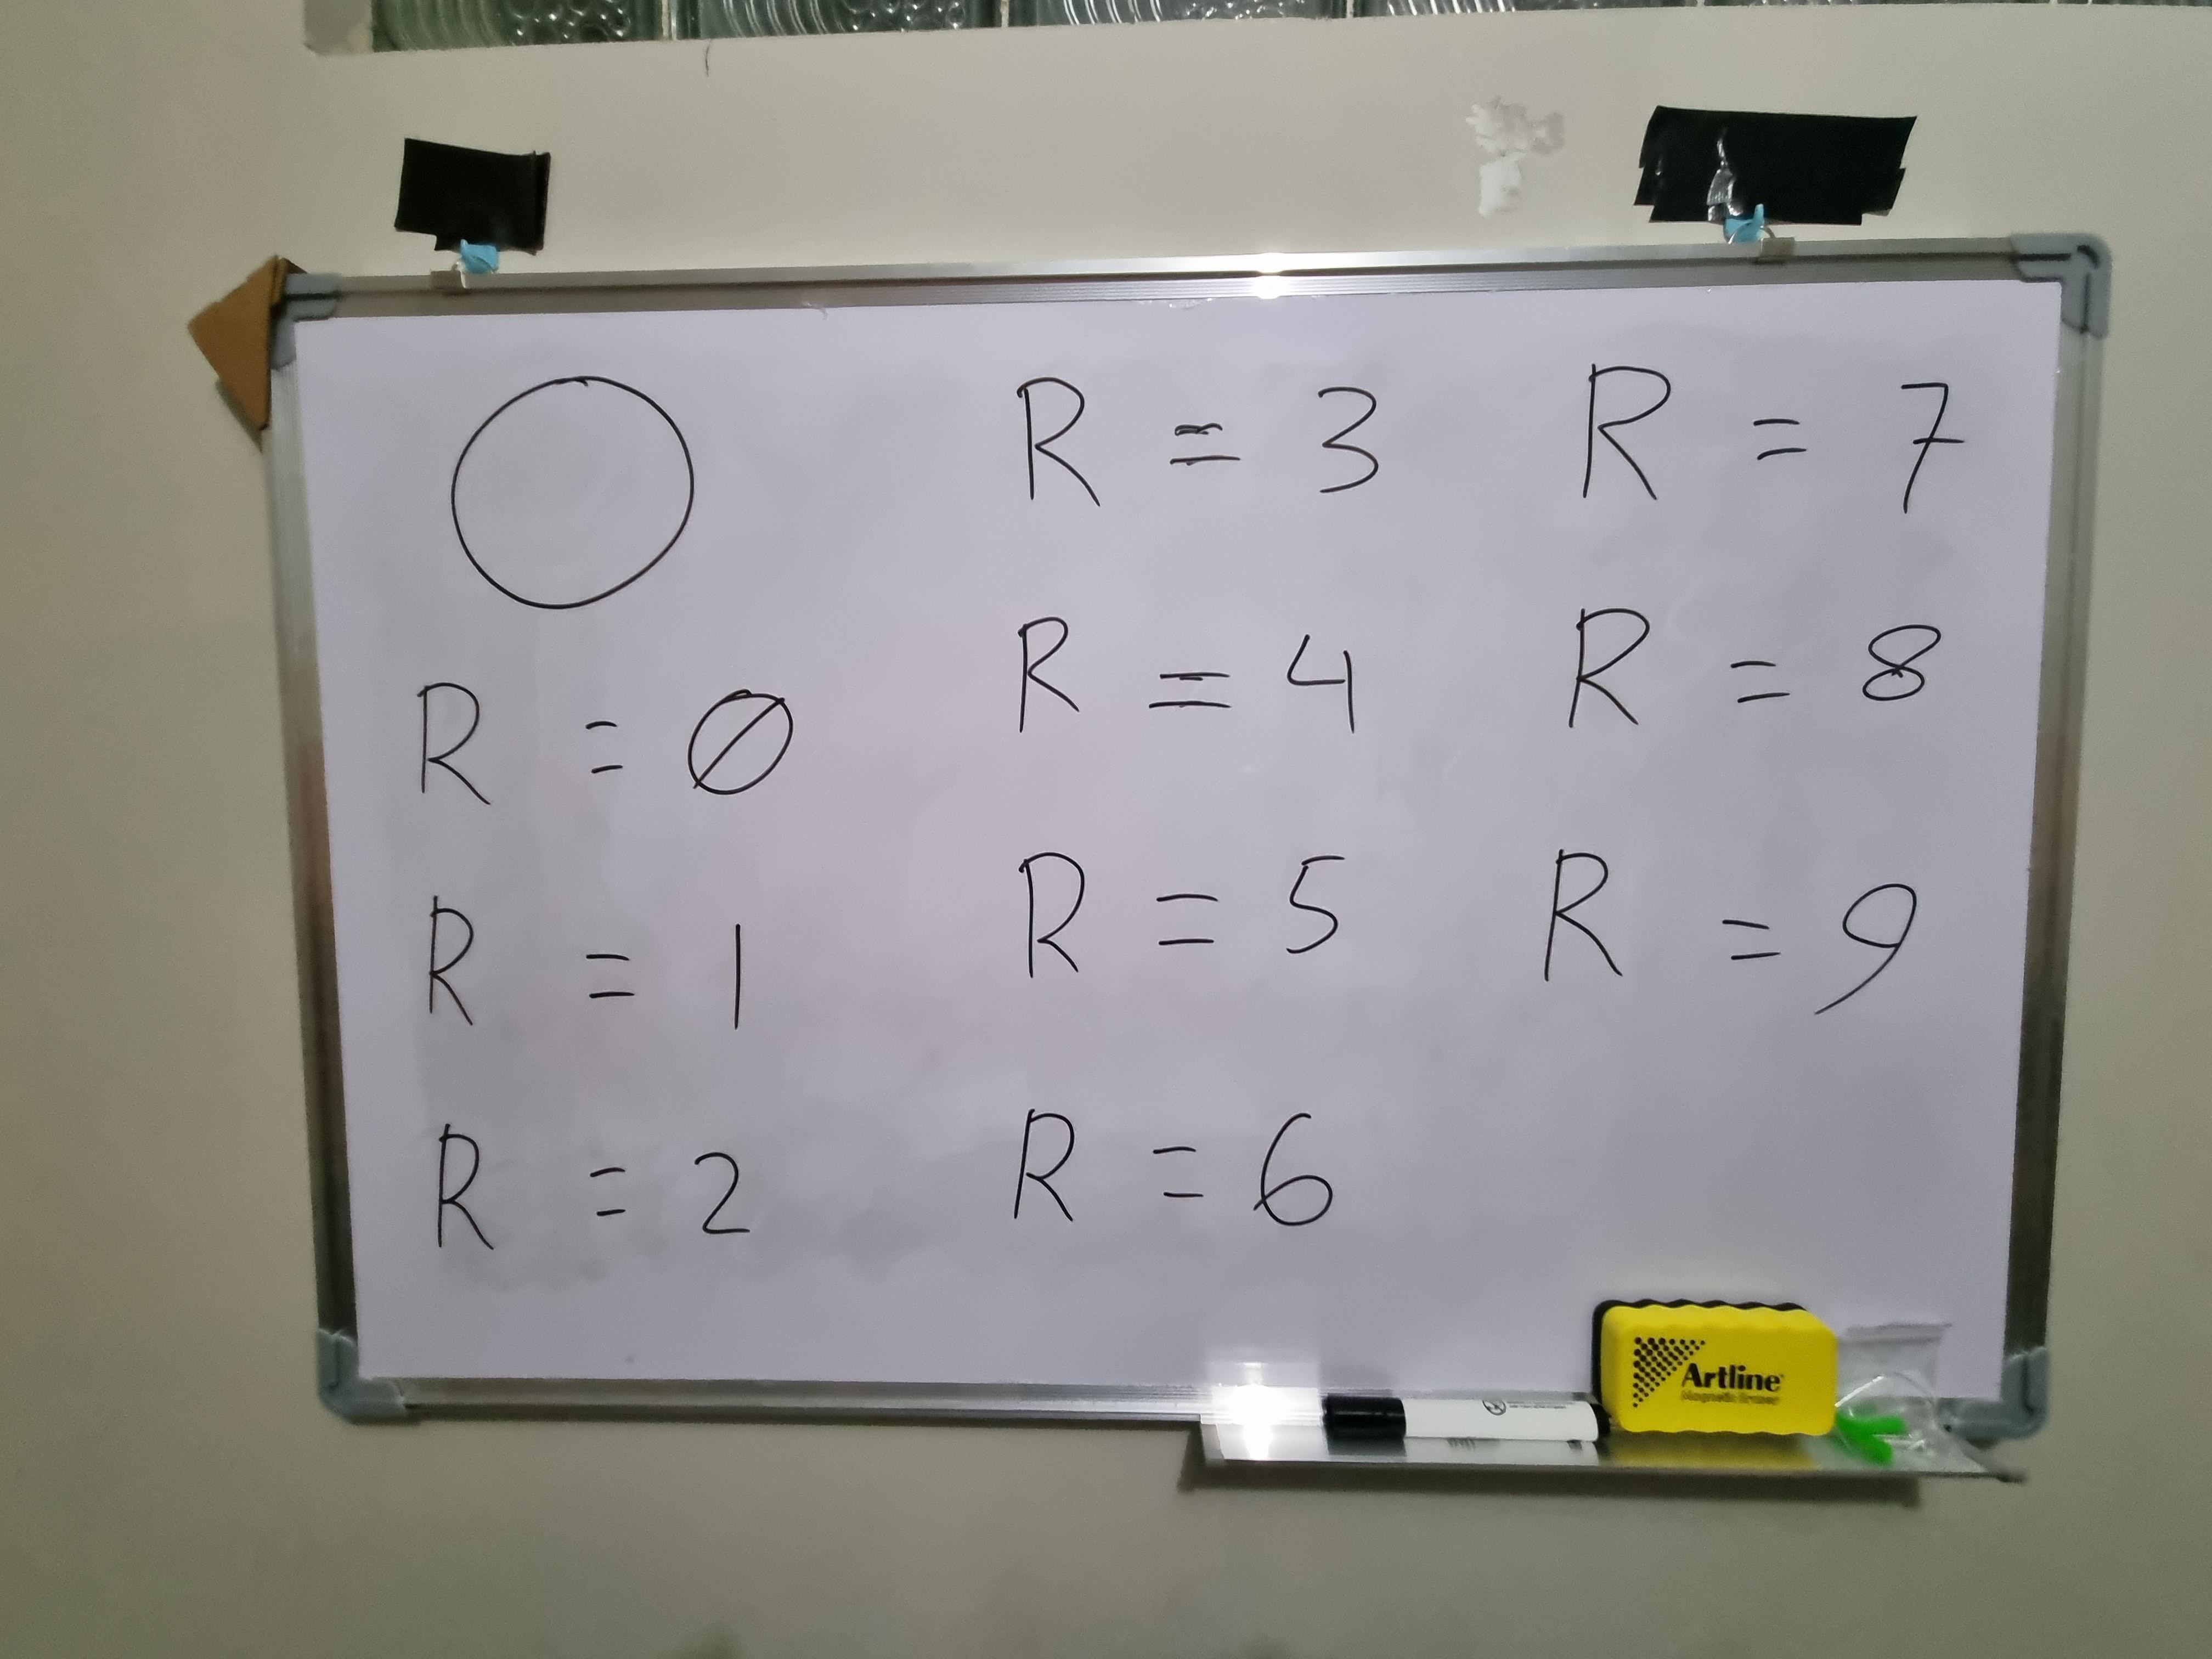 R = Ø
R = 1
R = 2
R = 3
R = 4
R = 5
R = 6
R = 7
R = 8
R = 9
Artline
Magnetic Eraser